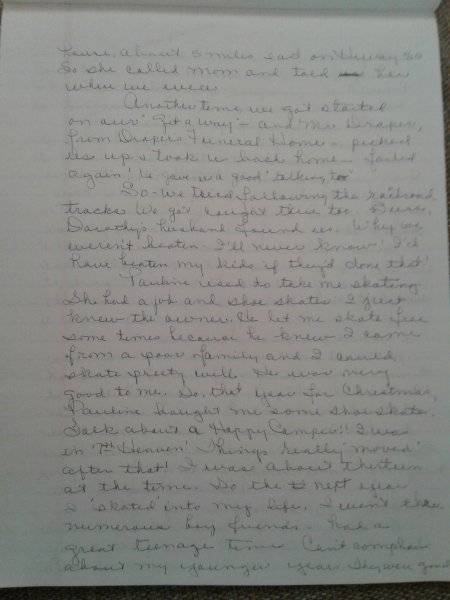 hours, about 5 miles east on Hiway 30
So she called Mom and told her
where we were.
Another time, we got started
on our "Get a way" - and Mr Draper,
from Drapers Funeral Home - picked
us up & took us back home - foiled
again! He gave us a good "talking to"
So - we tried following the railroad
tracks. We got caught there too.
Dorothy's husband found us. Why we
weren't beaten I'll never know! I'd
have beaten my kids if they'd done that!
Pauline used to take me skating
She had a job and shoe skates I just
knew the owner. He let me skate free
some times because he knew I came
from a poor family and I could
skate pretty well. He was very
good to me. So, that year for Christmas,
Pauline bought me some shoe skates.
Talk about a Happy Camper!! I was
in 7th Heaven! Things really "moved"
after that! I was about thirteen
at the time. So the next year
I "skated" into my life. I went thru
numerous boy friends - had a
great teenage time. Can't complain
about my younger years They were good